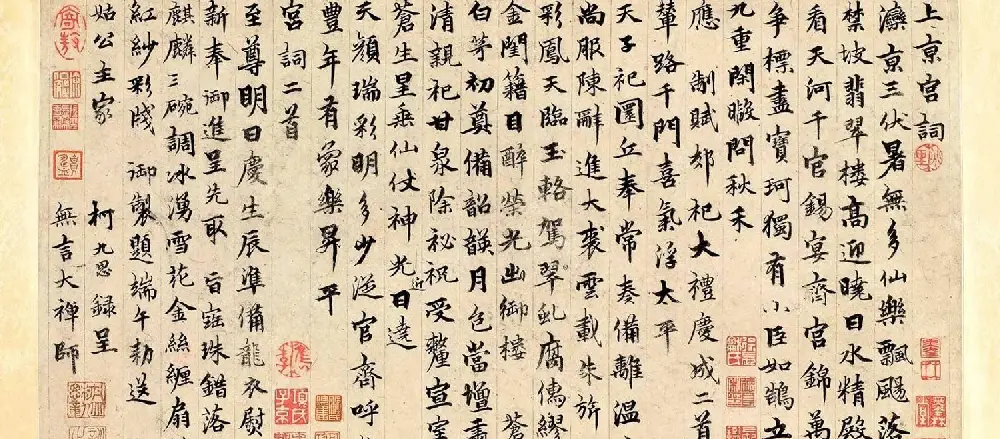 上京宮詞
灤京三伏暑無多仙樂飄颺落
禁坡翡翠樓高迎曉日水精殿
看天河千官錫宴齊宮錦萬
争標盡寶珂獨有小臣如鵠立
九重閑暇問秋禾
應制賦郊祀大禮慶成二首
輦路千門喜氣浮太平
天子祀圜丘奉常奏備離溫
尚服陳辭進大裘雲載朱旂
彩鳳天臨玉輅駕翠虬腐儒繆
金閨籍目醉榮光出御樓 蒼
白茅初奠備韶韺月色當壇
清親祀甘泉除祕祝受釐宣室
蒼生星垂仙仗神光近日遶
天顏瑞彩明多少從官齊呼
豐年有象樂昇平
宮詞二首
至尊明日慶生辰準備龍衣熨
新奉御進呈先取旨寶珠錯落
麒麟三碗調冰湧雪花金絲纏扇
紅紗彩牋御製題端午勅送
姑公主家
柯九思錄呈
無言大禪師